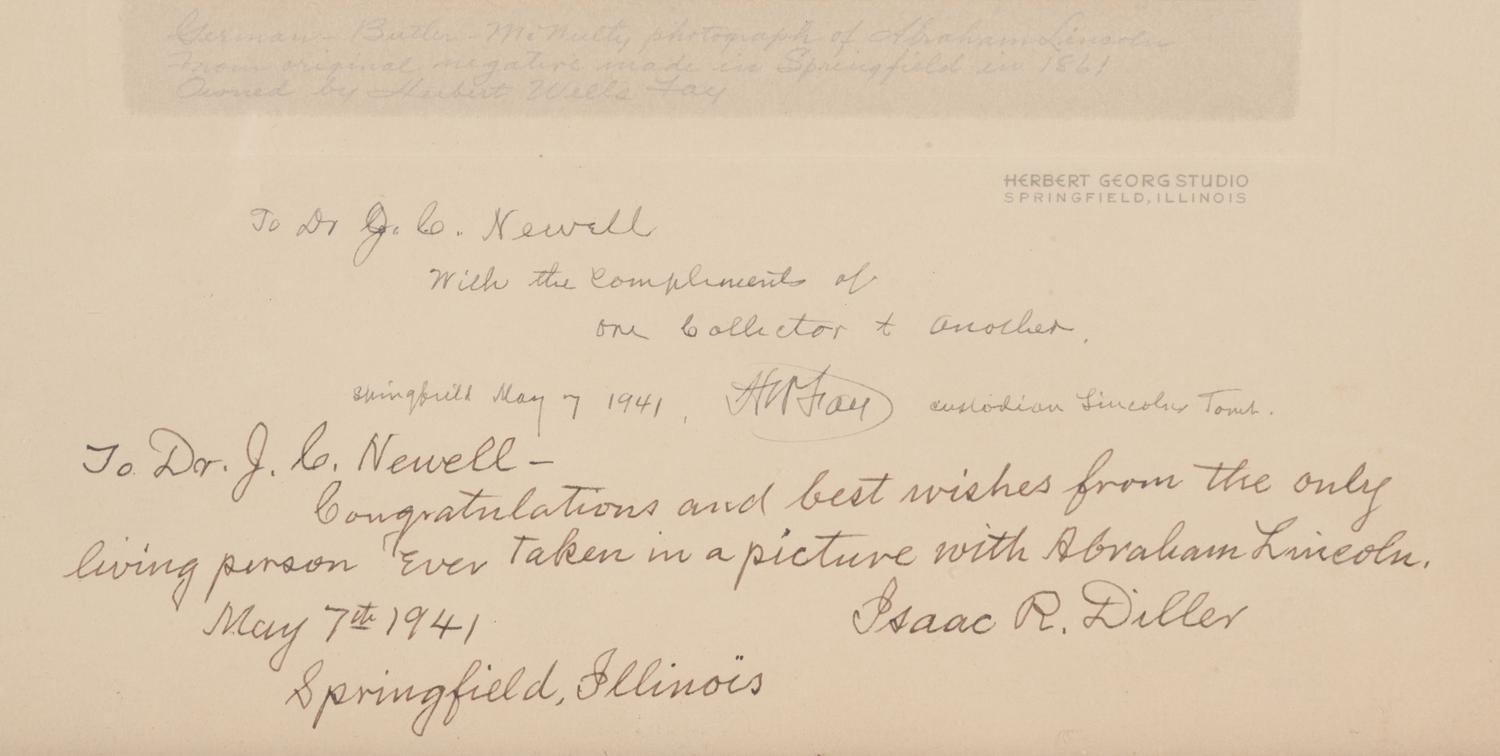 German - Butler - McNulty photograph of Abraham Lincoln
From original negative made in Springfield in 1861
Owned by Herbert Wells Fay
HERBERT GEORG STUDIO
SPRINGFIELD, ILLINOIS
To Dr J. C. Newell
With the Compliments of
one Collector to another.
Springfield May 7 1941, HW Fay custodian Lincolns Tomb.
To Dr. J. C. Newell -
Congratulations and best wishes from the only
living person Ever taken in a picture with Abraham Lincoln.
May 7th 1941 Isaac R. Diller
Springfield, Illinois